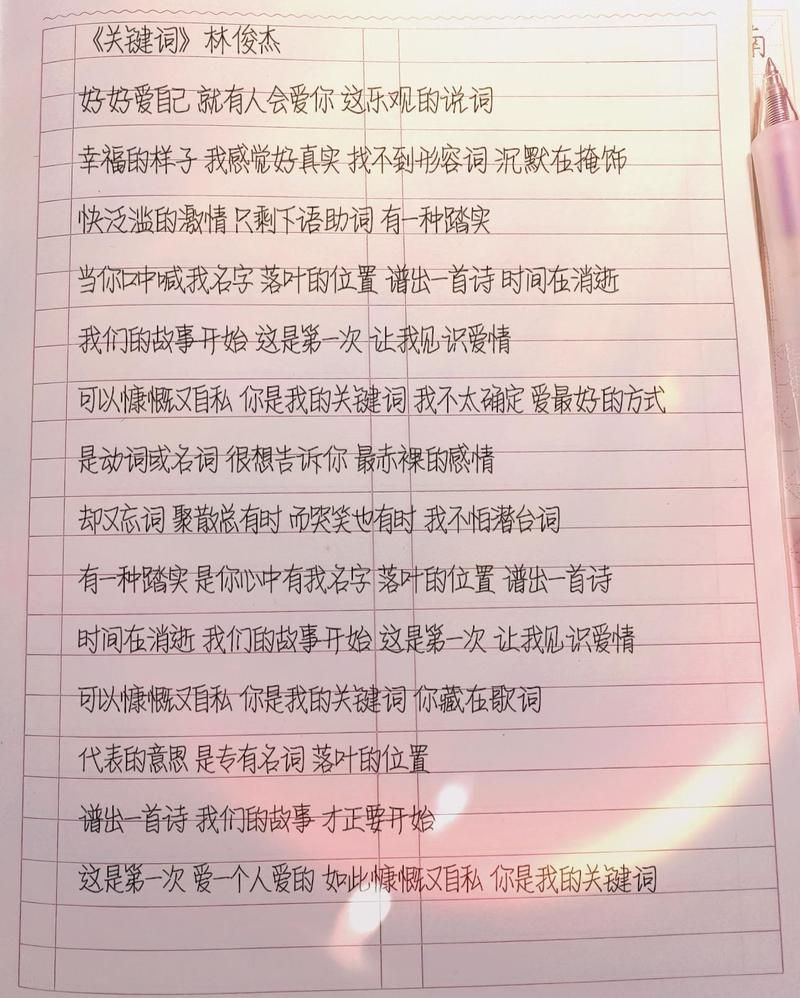 《关键词》 林俊杰
好好爱自己 就有人会爱你 这乐观的说词
幸福的样子 我感觉好真实 找不到形容词 沉默在掩饰
快泛滥的激情 只剩下语助词 有一种踏实
当你口中喊我名字 落叶的位置 谱出一首诗 时间在消逝
我们的故事开始 这是第一次 让我见识爱情
可以慷慨又自私 你是我的关键词 我不太确定 爱最好的方式
是动词或名词 很想告诉你 最赤裸的感情
却又忘词 聚散总有时 而哭笑也有时 我不怕潜台词
有一种踏实 是你心中有我名字 落叶的位置 谱出一首诗
时间在消逝 我们的故事开始 这是第一次 让我见识爱情
可以慷慨又自私 你是我的关键词 你藏在歌词
代表的意思 是专有名词 落叶的位置
谱出一首诗 我们的故事 才正要开始
这是第一次 爱一个人爱的 如此慷慨又自私 你是我的关键词